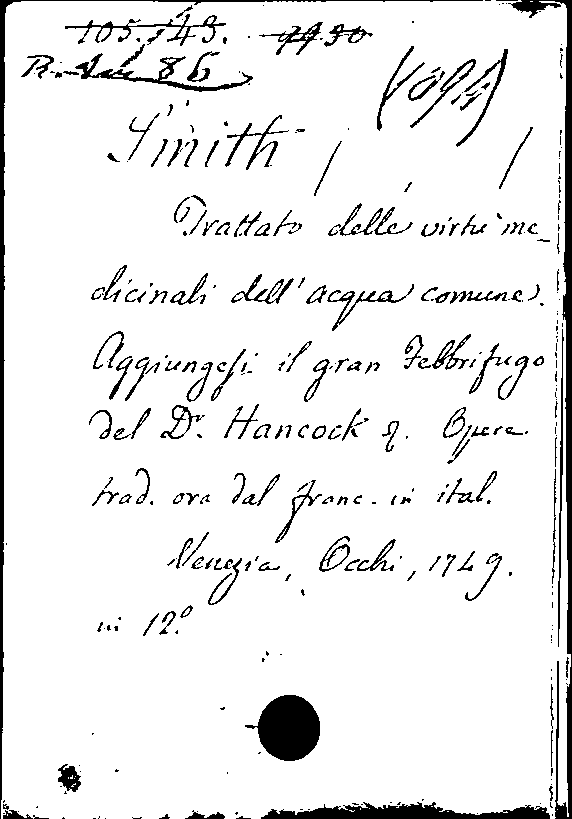 105.143. 9930
86
Smith
Trattato delle virtù me-
dicinali dell' acqua comune.
Aggiungesi il gran Febbrifugo
del Dr. Hancock &. Opere
trad. ora dal franc. in ital.
Venezia, Occhi, 1749.
in 12.º